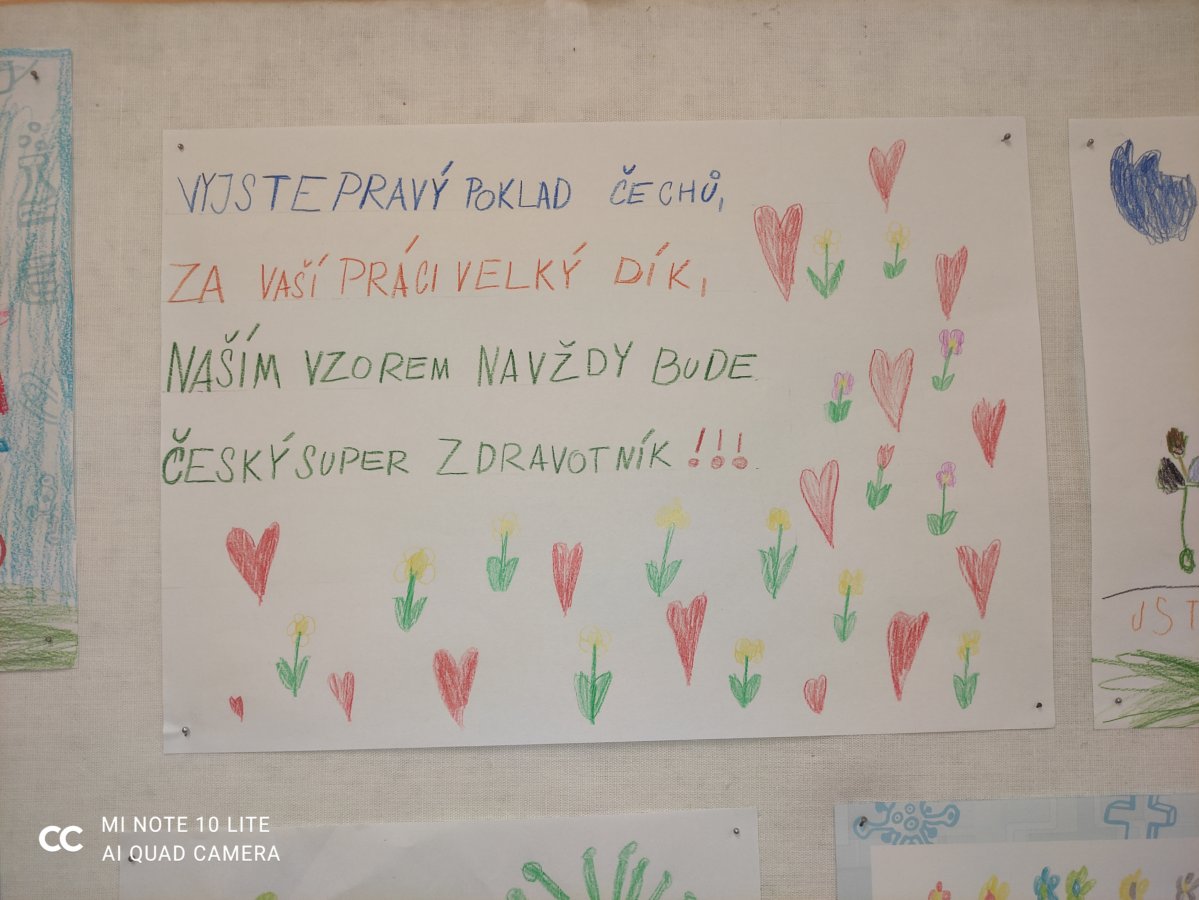 VY JSTE PRAVÝ POKLAD ČECHŮ,
ZA VAŠÍ PRÁCI VELKÝ DÍK,
NAŠÍM VZOREM NAVŽDY BUDE
ČESKÝ SUPER ZDRAVOTNÍK!!!
JST
MI NOTE 10 LITE
AI QUAD CAMERA